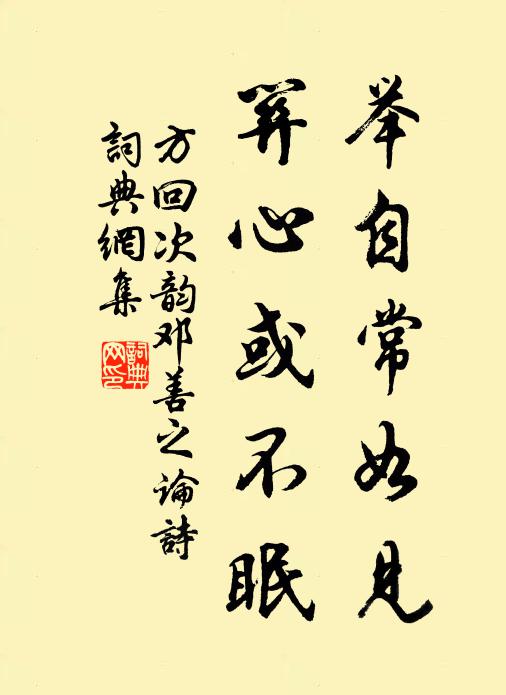 举自常如见
心或不眠
方回次韵邓善之論詩
詞典網集
詞典
网印